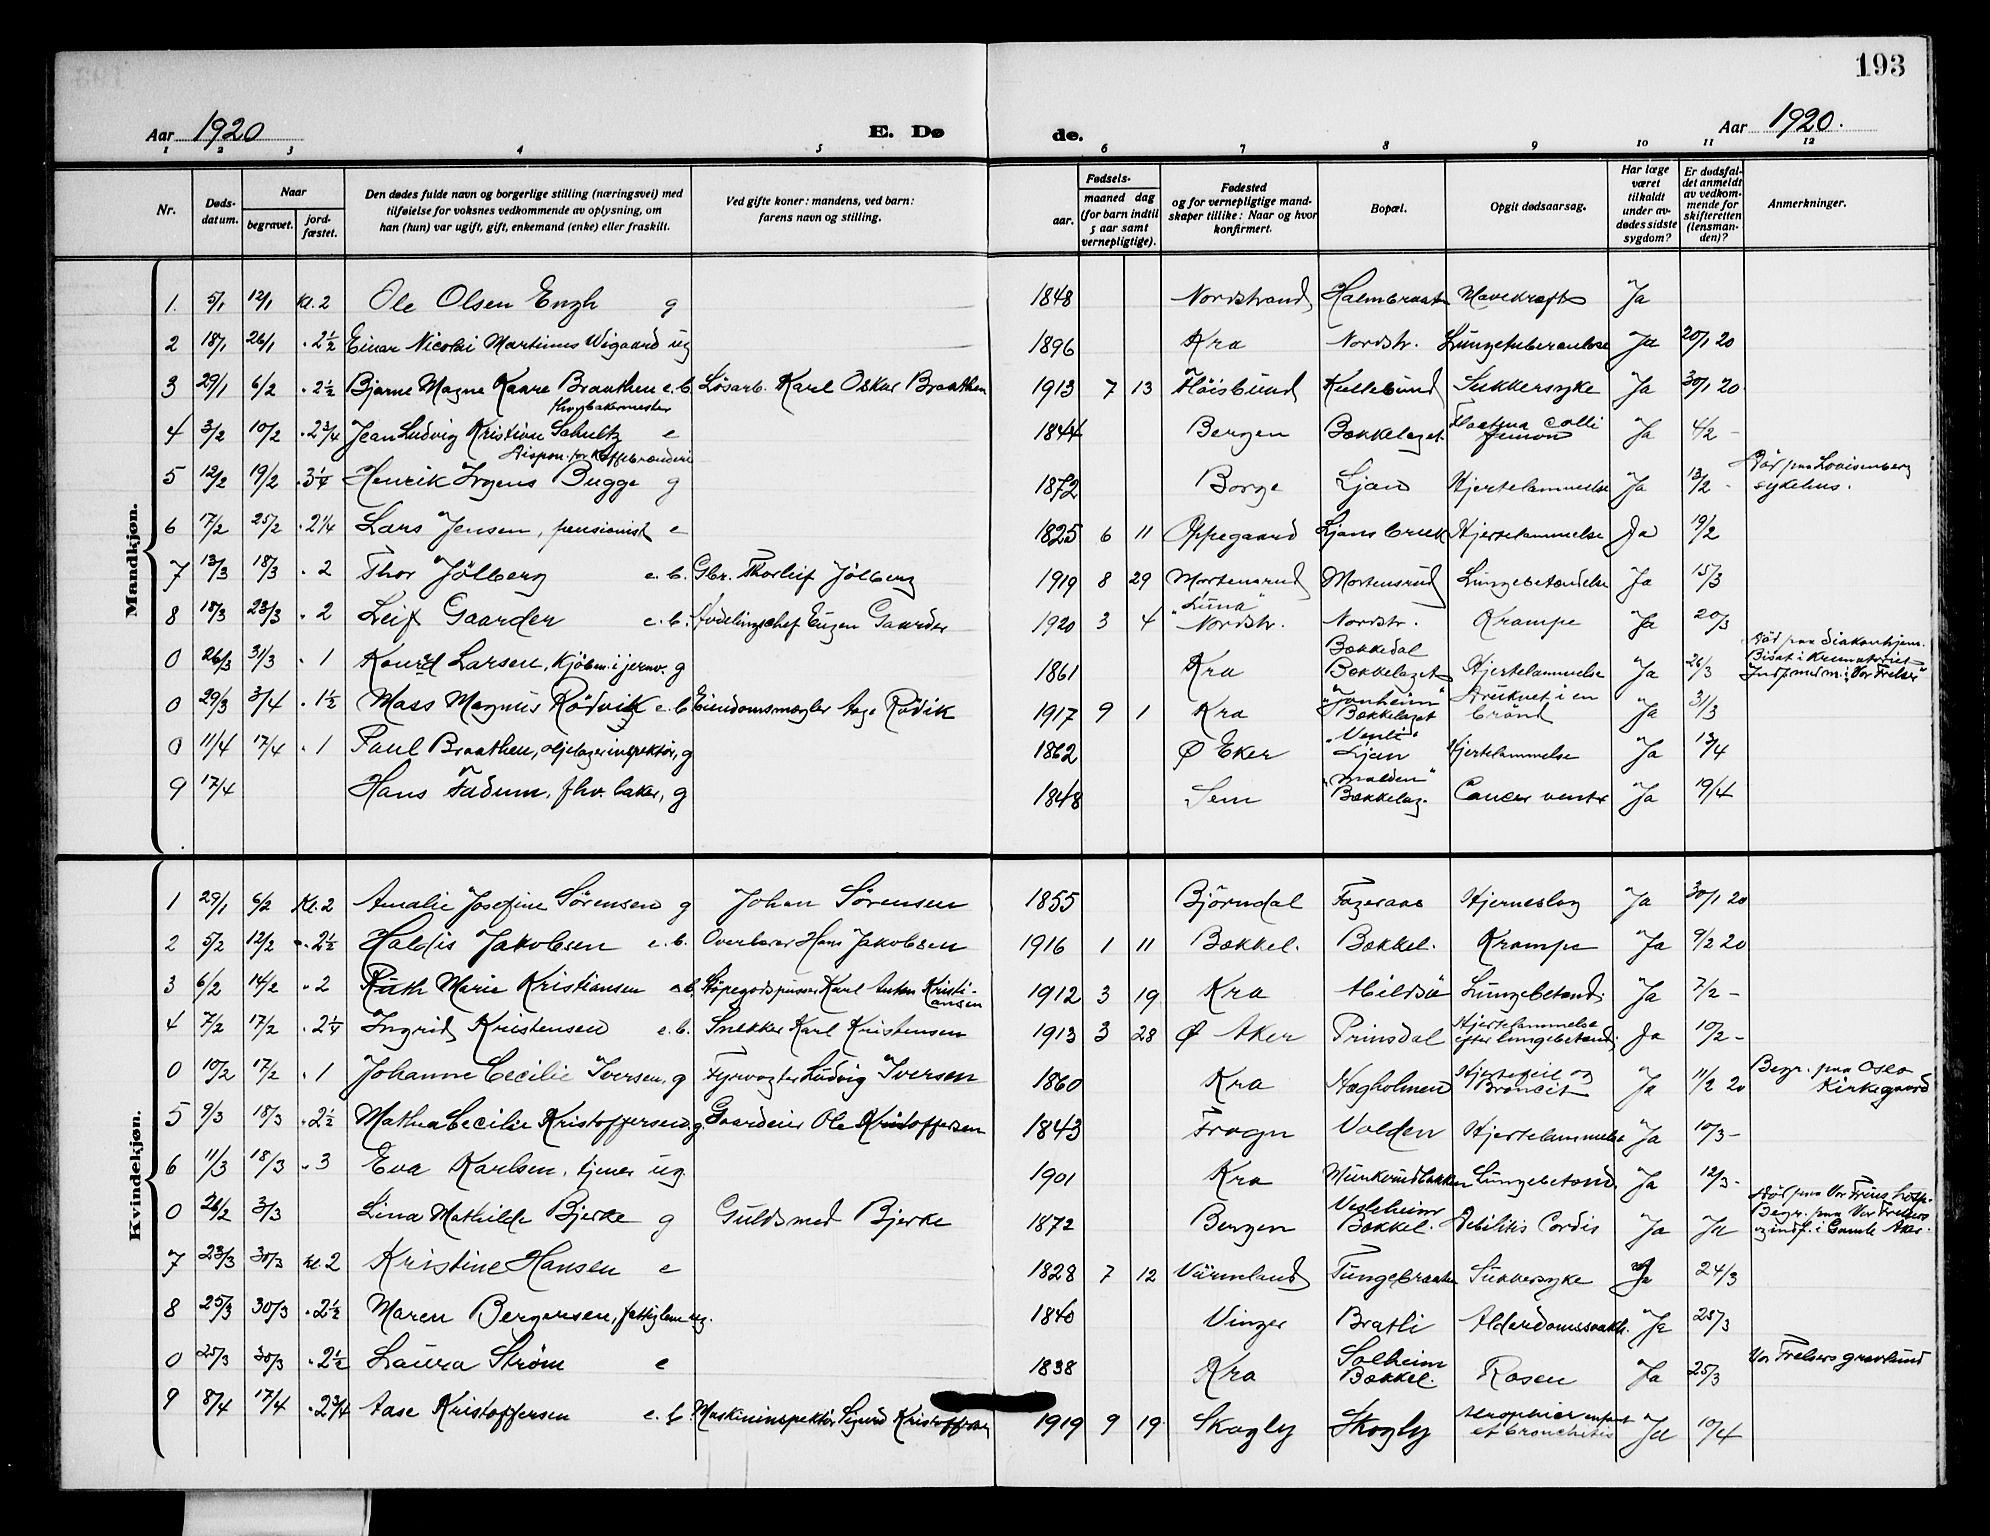 193
Aar 1920 E. Døde. Aar 1920.
1 2 3 4 5 6 7 8 9 10 11 12
Nr. Døds-datum. Naar begravet. jord-fæstet. Den dødes fulde navn og borgerlige stilling (næringsvei) med tilføielse for voksnes vedkommende av oplysning, om han (hun) var ugift, gift, enkemand (enke) eller fraskilt. Ved gifte koner: mandens, ved barn: farens navn og stilling. Fødsels- aar. maaned dag (for barn indtil 5 aar samt vernepligtige). Fødested og for vernepligtige mand-skaper tillike: Naar og hvor konfirmert. Bopæl. Opgit dødsaarsag. Har læge været tilkaldt under av-dødes sidste sygdom? Er dødsfal-det anmeldt av vedkom-mende for skifteretten (lensman-den)? Anmerkninger.
Mandkjøn.
1. 5/1 12/1 Kl. 2 Ole Olsen Engh g 1848 Nordstrand Holmbraaten Mavekræft Ja
2 18/1 26/1 " 2½ Einar Nicolai Martinius Wigaard ug 1896 Kra Nordstr. Lungetuberculose Ja 20/1 20
3 29/1 6/2 " 2½ Bjarne Magne Kaare Braathen e.b. Løsarb. Karl Oskar Braathen 1913 7 13 Fløisbund Kullebund Sukkersyke Ja 30/1 20
4 3/2 10/2 " 2¾ Jean Ludvig Kristian Schultz fhv bakermester e 1844 Bergen Bækkelaget. colli femoris Ja 4/2 -
5 12/2 19/2 " 3¼ Henrik Irgens Bugge Dispon. for Kaffebrænderi g 1872 Borge Ljan Hjertelammelse Ja 13/2 - Død paa Lovisenberg sykehus.
6 17/2 25/2 " 2¼ Lars Jensen, pensionist e 1825 6 11 Oppegaard Ljans bruk Hjertelammelse Ja 19/2
7 13/3 18/3 " 2 Thor Jølberg e.b. Gbr. Thorleif Jølberg 1919 8 29 Mortensrud Mortensrud Lungebetændelse Ja 15/3
8 18/3 23/3 " 2 Leif Gaarder e.b. Avdelingschef Eugen Gaarder 1920 3 4 "Luna" Nordstr. Nordstr. Krampe Ja 20/3
0 26/3 31/3 " 1 Konrad Larsen, Kjøbm. i jernv. g 1861 Kra Bækkedal Bækkelaget Hjertelammelse Ja 26/3 Død paa Diakonhjem. Bisat i Krematoriet "Vor Frelser"
0 29/3 3/4 " 1½ Mass Magnus Rödvik e.b. Eiendomsmægler Aage Rödvik 1917 9 1 Kra "Tonheim" Bækkelaget Druknet i en brønd Ja 31/3
0 11/4 17/4 " 1 Paul Braathen, oljelagerinspektör, g 1862 Ø Eker Ljan Hjertelammelse Ja 13/4
9 17/4 Hans Fadum, fhv. baker, g 1848 Sem "Malden" Bækkelag. Cancer ventr Ja 19/4
Kvindekjøn.
1 29/1 6/2 Kl. 2 Amalie Josefine Sørensen g Johan Sørensen 1855 Björndal Fageraas Hjerneslag Ja 30/1 20
2 5/2 12/2 " 2½ Haldis Jakobsen e.b. Overlærer Hans Jakobsen 1916 1 11 Bækkel. Bækkel. Krampe Ja 9/2 20
3 6/2 14/2 " 2 Ruth Marie Kristiansen e.b. Støpegodspusser Karl Anton Kristi-ansen 1912 3 19 Kra Lungebetænd. Ja 7/2 -
4 7/2 17/2 " 2¼ Ingrid Kristensen e.b. Snekker Karl Kristensen 1913 3 28 Ø Aker Prinsdal Hjertelammelse efter lungebetænd. Ja 10/2 -
0 10/2 17/2 " 1 Johanne Cecilie Iversen, g Fyrvogter Ludvig Iversen 1860 Kra Hægholmen Hjertefeil og Broncit Ja 11/2 20 Begr. paa Oslo Kirkegaard
5 9/3 18/3 " 2½ Mathea Cecilie Kristoffersen g Gaardeier Ole Kristoffersen 1843 Frogn Volden Hjertelammelse Ja 10/3 -
6 11/3 18/3 " 3 Eva Karlsen, tjener ug 1901 Kra Munkerudbakken Lungebetænd. Ja 12/3 -
0 26/2 3/3 Lina Mathilde Bjerke g Guldsmed Bjerke 1872 Bergen Vesleheim Bækkel. Debilitis Cordis Ja Ja Død paa Vor Frues hosp. Begr. paa Vor Frelsers og indf. i Gamle Aker.
7 23/3 30/3 Kl. 2 Kristine Hansen e 1828 7 12 Värmland Tungebraaten Sukkersyke Ja 24/3
8 25/3 30/3 " 2½ Maren Bergersen, fattiglem ug. 1840 Vinger Bratli Alderdomssvakh. Ja 25/3
0 25/3 30/3 " 2½ Laura Strøm e 1838 Kra Solheim Bækkel. Rosen Ja 25/3 Vor Frelsers gravlund
9 8/4 17/4 " 2¾ Aase Kristoffersen e.b. Maskininspektör Sigurd Kristoffersen 1919 9 19 Skogly Skogly et bronchitis Ja 10/4